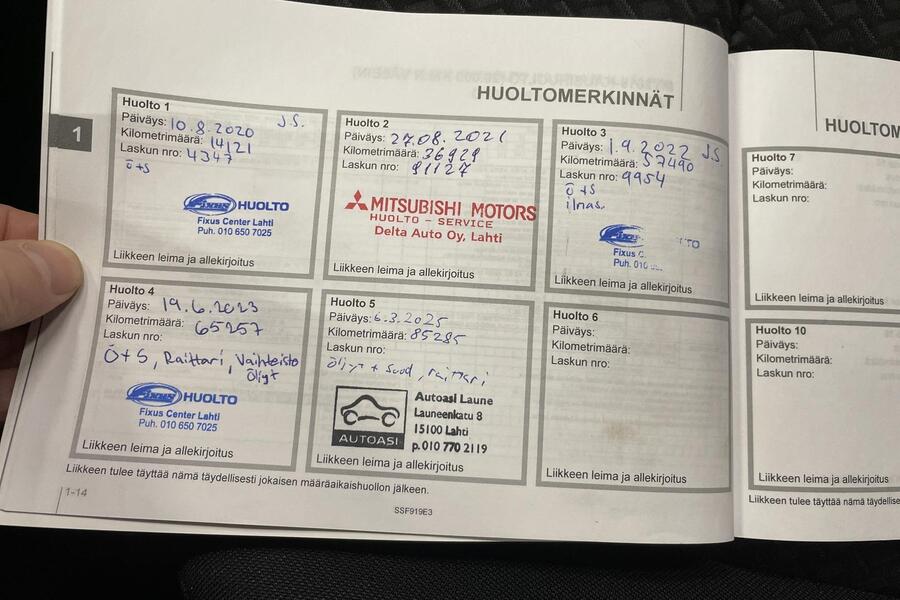 HUOLTOMERKINNÄT
1
Huolto 1
J.S.
Päiväys: 10.8.2020
Kilometrimäärä: 14121
Laskun nro: 4347
Ö+S
FIXUS HUOLTO
Fixus Center Lahti
Puh. 010 650 7025
Liikkeen leima ja allekirjoitus
Huolto 2
Päiväys: 27.08.2021
Kilometrimäärä: 36929
Laskun nro: 91127
MITSUBISHI MOTORS
HUOLTO - SERVICE
Delta Auto Oy, Lahti
Liikkeen leima ja allekirjoitus
Huolto 3
Päiväys: 1.9.2022 JS
Kilometrimäärä: 57490
Laskun nro: 9954
Ö+S
ilmas.
Fixus C
Puh. 010
Liikkeen leima ja allekirjoitus
Huolto 4
Päiväys: 19.6.2023
Kilometrimäärä: 65257
Laskun nro:
Ö+S, Raittari, Vaihteisto
Öljyt
FIXUS HUOLTO
Fixus Center Lahti
Puh. 010 650 7025
Liikkeen leima ja allekirjoitus
Huolto 5
Päiväys: 6.3.2025
Kilometrimäärä: 85285
Laskun nro:
Öljyt + suod, raittari
AUTOASI
Autoasi Laune
Launeenkatu 8
15100 Lahti
p.010 770 2119
Liikkeen leima ja allekirjoitus
Huolto 6
Päiväys:
Kilometrimäärä:
Laskun nro:
Liikkeen leima ja allekirjoitus
Liikkeen tulee täyttää nämä täydellisesti jokaisen määräaikaishuollon jälkeen.
1-14
SSF919E3
HUOLTOM
Huolto 7
Päiväys:
Kilometrimäärä:
Laskun nro:
Liikkeen leima ja allekirjoitus
Huolto 10
Päiväys:
Kilometrimäärä:
Laskun nro:
Liikkeen leima ja allekirjoitus
Liikkeen tulee täyttää nämä täydellise